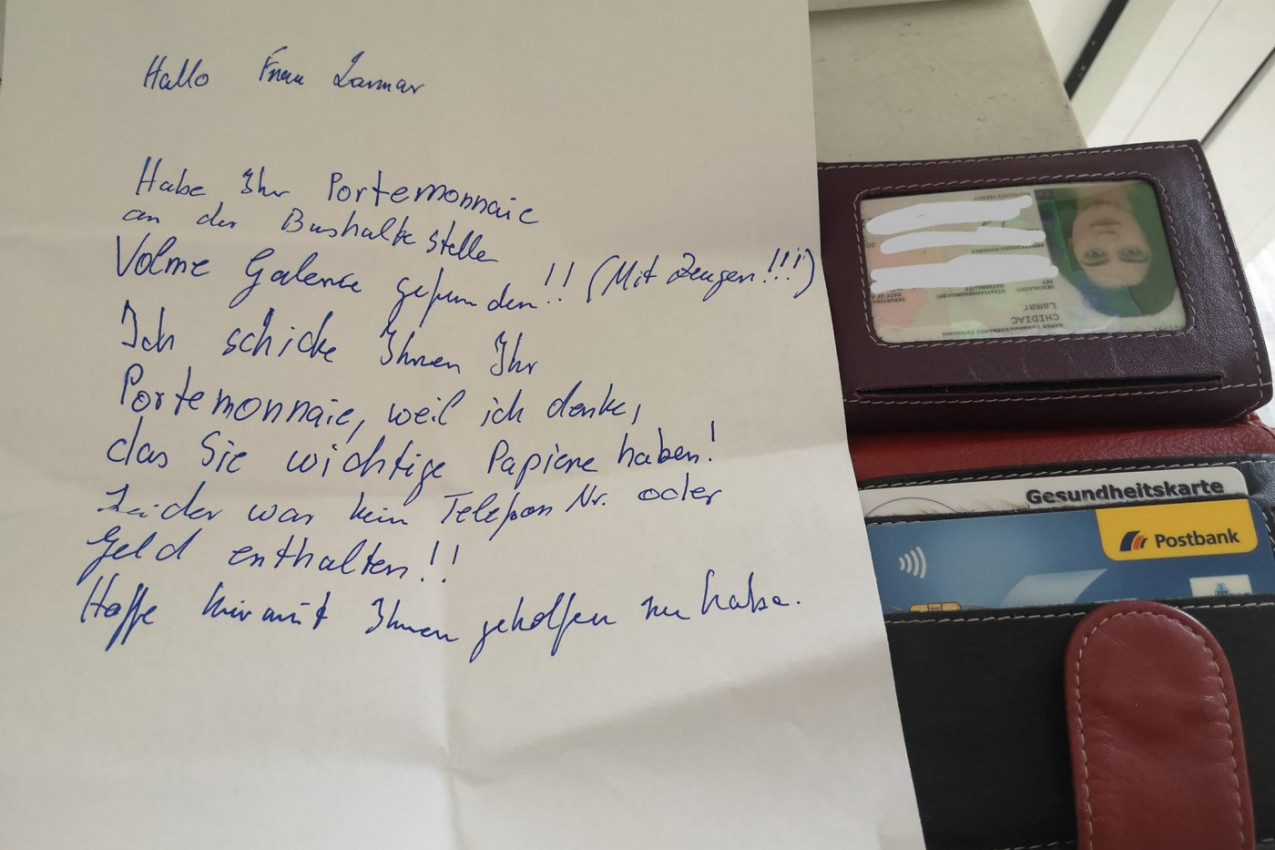 Hallo Frau Lanmar
Habe Ihr Portemonnaie
an der Bushaltestelle
Volme Galerie gefunden!! (Mit Zeugen!!!)
Ich schicke Ihnen Ihr
Portemonnaie, weil ich denke,
das Sie wichtige Papiere haben!
Leider war kein Telefon Nr. oder
Geld enthalten!!
Hoffe hiermit Ihnen geholfen zu habe.
CHIDIAC
Lamar
Gesundheitskarte
Postbank